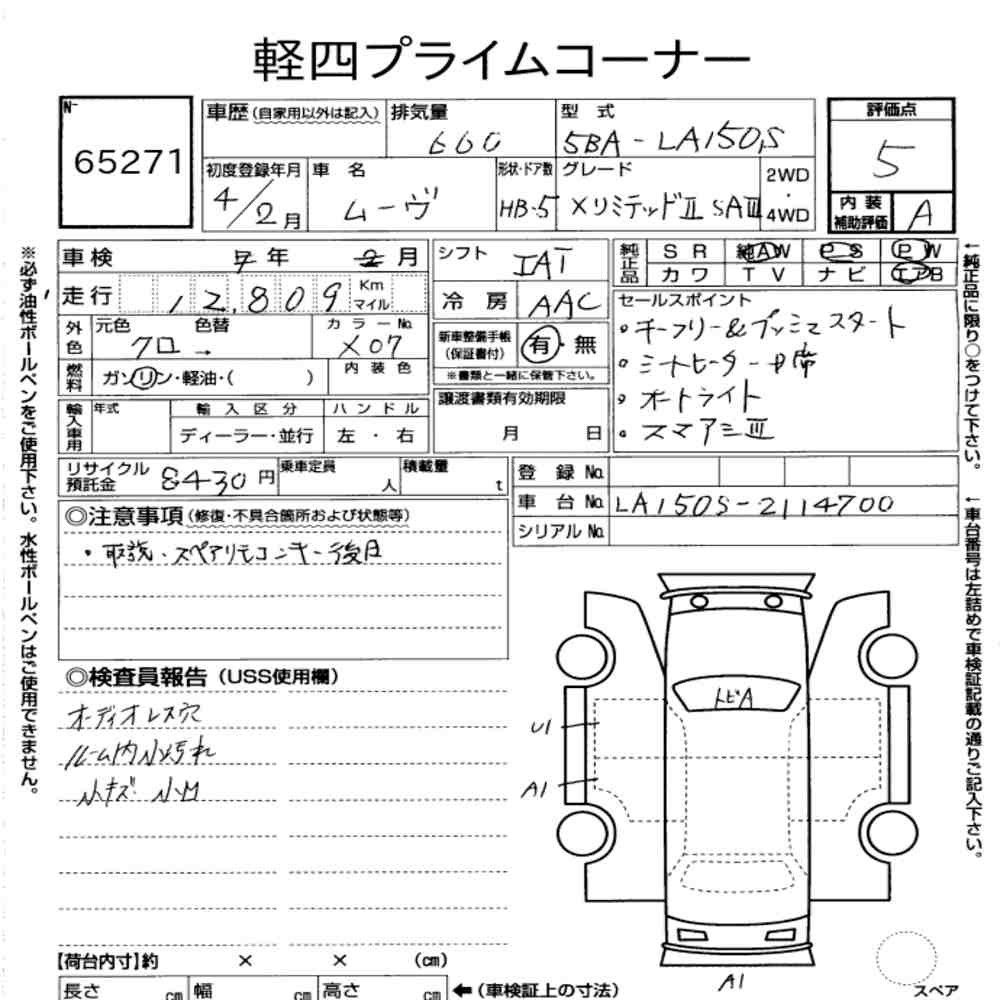 軽四プライムコーナー
N-
65271
車歴 (自家用以外は記入)
排気量
660
型 式
5BA-LA150S
評価点
5
初度登録年月
4/2月
車 名
ムーヴ
形状・ドア数
HB-5
グレード
XリミテッドⅡ SAⅢ
2WD
・
4WD
内 装
補助評価
A
車検 7年 2月
シフト
IAT
純正品
S R 純AW P S P W
カ ワ T V ナ ビ エアB
走行 12,809 Km
マイル
冷 房 AAC
セールスポイント
・キーフリー&プッシュスタート
・シートヒーター
・オートライト
・スマアシⅢ
外色
元色 色替
クロ →
カラーNo.
X07
新車整備手帳
(保証書付)
有・無
※書類と一緒に保管下さい。
燃料
ガソリン・軽油・( )
内 装 色
輸入車用
年式
輸 入 区 分
ディーラー・並行
ハ ン ド ル
左 ・ 右
譲渡書類有効期限
月 日
リサイクル
預託金
8430 円
乗車定員
人
積載量
t
登 録 No.
車 台 No. LA150S-2114700
シリアル No.
◎注意事項 (修復・不具合箇所および状態等)
・取説・スペアリモコンキー後日
◎検査員報告 (USS使用欄)
オーディオレス穴
ルーム内小汚れ
小キズ 小凹
トビA
U1
A1
A1
【荷台内寸】約 × × (cm)
長さ cm 幅 cm 高さ cm
←(車検証上の寸法)
スペア
※必ず油性ボールペンをご使用下さい。水性ボールペンはご使用できません。
←純正品に限り○をつけて下さい。
←車台番号は左詰めで車検証記載の通りご記入下さい。